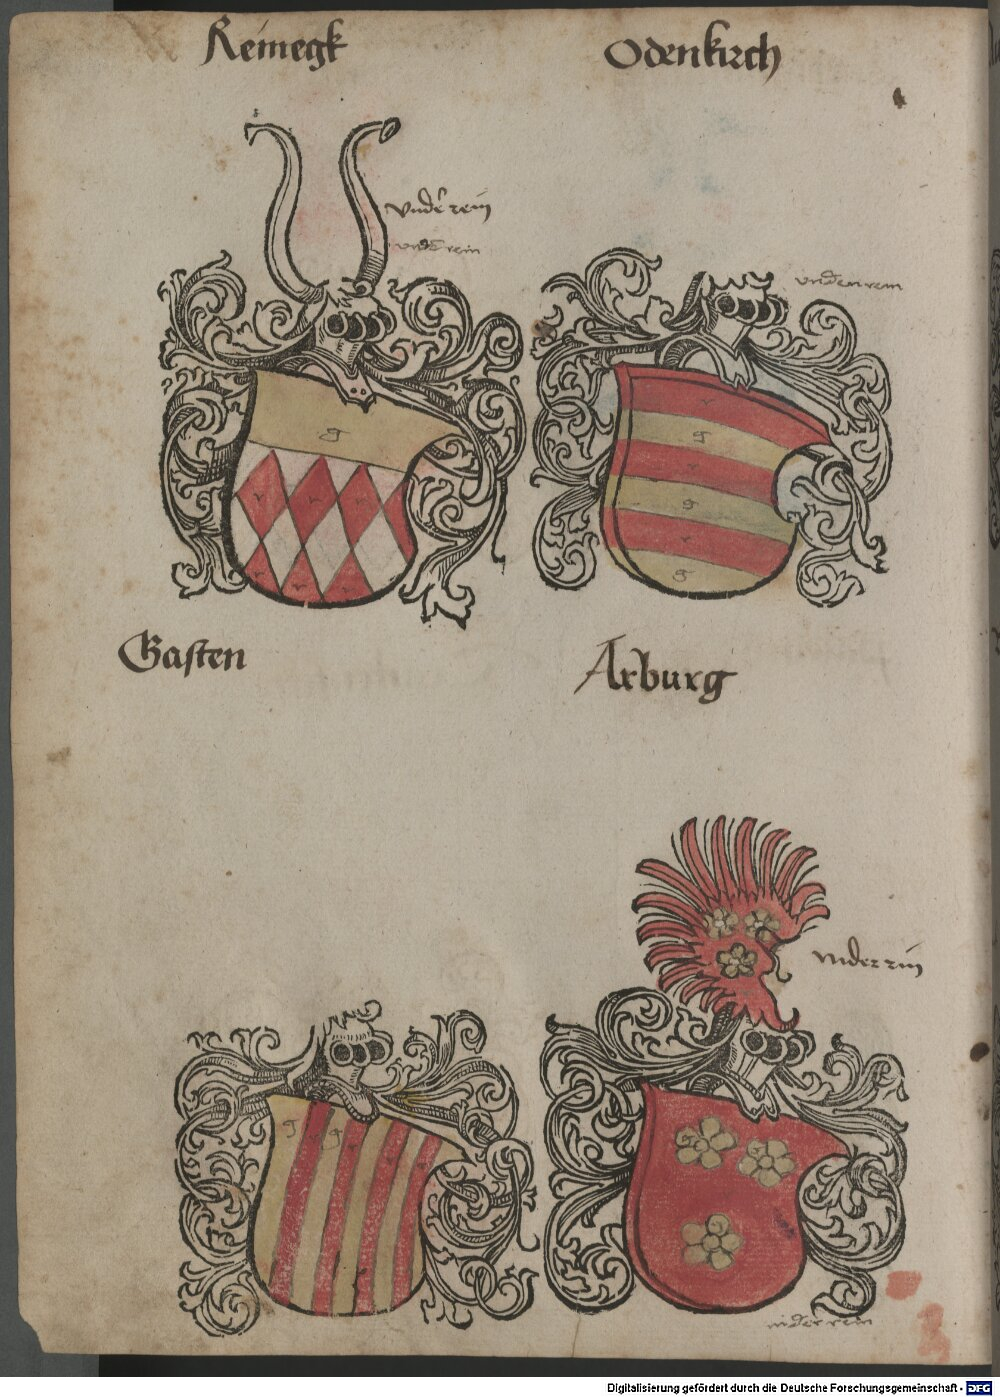 Reinegk
Odenkirch
Vnder rein
vnder rein
vnden rein
g
r
g
r
r
r
g
r
g
r
r
r
r
g
Gasten
Arburg
niderrin
g
r
g
niderrein
Digitalisierung gefördert durch die Deutsche Forschungsgemeinschaft - DFG